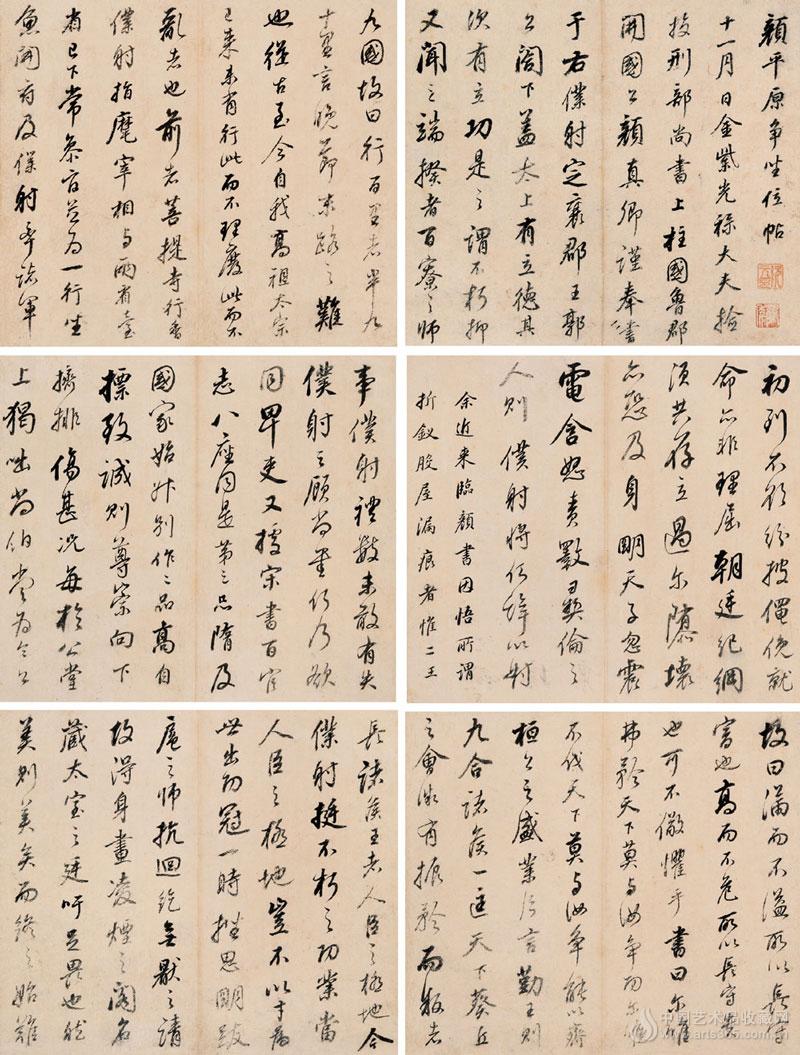 顏平原争坐位帖
十一月日金紫光祿大夫撿
挍刑部尚書上柱國魯郡
開國公顏真卿謹奉書
于右僕射定襄郡王郭
公閤下蓋太上有立德其
次有立功是之謂不朽抑
又聞之端揆者百寮之師
九國故曰行百里者半九
十里言晚節末路之難
也從古至今自我高祖太宗
已来未有行此而不理廢此而不
亂者也前者菩提寺行香
僕射指麾宰相与兩省臺
省已下常參官並為一行坐
魚開府及僕射率諸軍
初到不欲紛披僶俛就
命亦非理屈朝廷紀綱
須共存立過尔隳壞
亦恐及身明天子忽震
電含怒責斁彝倫之
人則僕射將何辭以對
余近来臨顏書因悟所謂
折釵股屋漏痕者惟二王
事僕射禮數未敢有失
僕射之顧尚書行乃欲
同卑吏又據宋書百官
志八座同是第三品隋及
國家始升別作二品高自
標致誠則尊崇向下
擠排傷甚況每於公堂
上猲咄常伯當為令公
故曰滿而不溢所以長守
富也高而不危所以長守貴
也可不儆懼乎書曰尔唯
弗矜天下莫与汝争功尔唯
不伐天下莫与汝争能以齊
桓公之盛業片言勤王則
九合諸侯一匡天下葵丘
之會微有振矜而叛者
長諸侯王者人臣之極地今
僕射挺不朽之功業當
人臣之極地豈不以才為
世出功冠一時挫思明跋
扈之師抗迴紇無猒之請
故得身畫凌煙之閣名
蔵太室之廷吁足畏也然
美則美矣而終之始難
中国艺术品收藏网